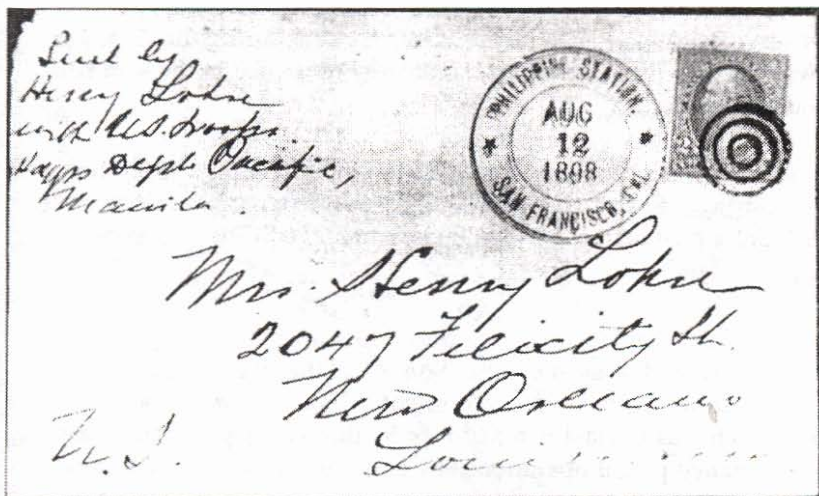 Sent by
Henry Lohse
with U.S. troops.
Hdqrs Dept Pacific,
Manila.
PHILIPPINE STATION
AUG
12
1898
SAN FRANCISCO, CAL.
Mrs. Henry Lohse
2047 Felicity St.
New Orleans
U.S.